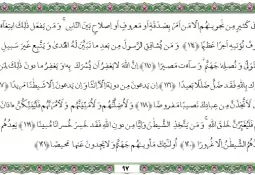 فِى كَثِيرٍ مِن نَجْوٰيهُمْ اِلَّا مَنْ اَمَرَ بِصَدَقَةٍ اَوْ مَعْرُوفٍ اَوْ اِصْلَاحٍ بَيْنَ النَّاسِ وَمَنْ يَفْعَلْ ذٰلِكَ ابْتِغَاءَ
فَ نُؤْتِيهِ اَجْرًا عَظِيمًا ﴿١١٤﴾ وَمَنْ يُشَاقِقِ الرَّسُولَ مِنْ بَعْدِ مَا تَبَيَّنَ لَهُ الْهُدٰى وَيَتَّبِعْ غَيْرَ سَبِيلِ
تَوَلّٰى وَنُصْلِهِ جَهَنَّمَ وَسَاءَتْ مَصِيرًا ﴿١١٥﴾ اِنَّ اللّٰهَ لَا يَغْفِرُ اَنْ يُشْرَكَ بِهِ وَيَغْفِرُ مَا دُونَ ذٰلِكَ لِمَنْ
كْ بِاللّٰهِ فَقَدْ ضَلَّ ضَلَالًا بَعِيدًا ﴿١١٦﴾ اِنْ يَدْعُونَ مِنْ دُونِهِ اِلَّا اِنَاثًا وَاِنْ يَدْعُونَ اِلَّا شَيْطَانًا مَرِيدًا ﴿١١٧﴾
لَ لَاَتَّخِذَنَّ مِنْ عِبَادِكَ نَصِيبًا مَفْرُوضًا ﴿١١٨﴾ وَلَاُضِلَّنَّهُمْ وَلَاُمَنِّيَنَّهُمْ وَلَاٰمُرَنَّهُمْ فَلَيُبَتِّكُنَّ اٰذَانَ
فَلَيُغَيِّرُنَّ خَلْقَ اللّٰهِ وَمَنْ يَتَّخِذِ الشَّيْطٰنَ وَلِيًّا مِنْ دُونِ اللّٰهِ فَقَدْ خَسِرَ خُسْرَانًا مُبِينًا ﴿١١٩﴾ يَعِدُهُمْ
الشَّيْطٰنُ اِلَّا غُرُورًا ﴿١٢٠﴾ اُولٰئِكَ مَأْوٰيهُمْ جَهَنَّمُ وَلَا يَجِدُونَ عَنْهَا مَحِيصًا ﴿١٢١﴾
٩٧